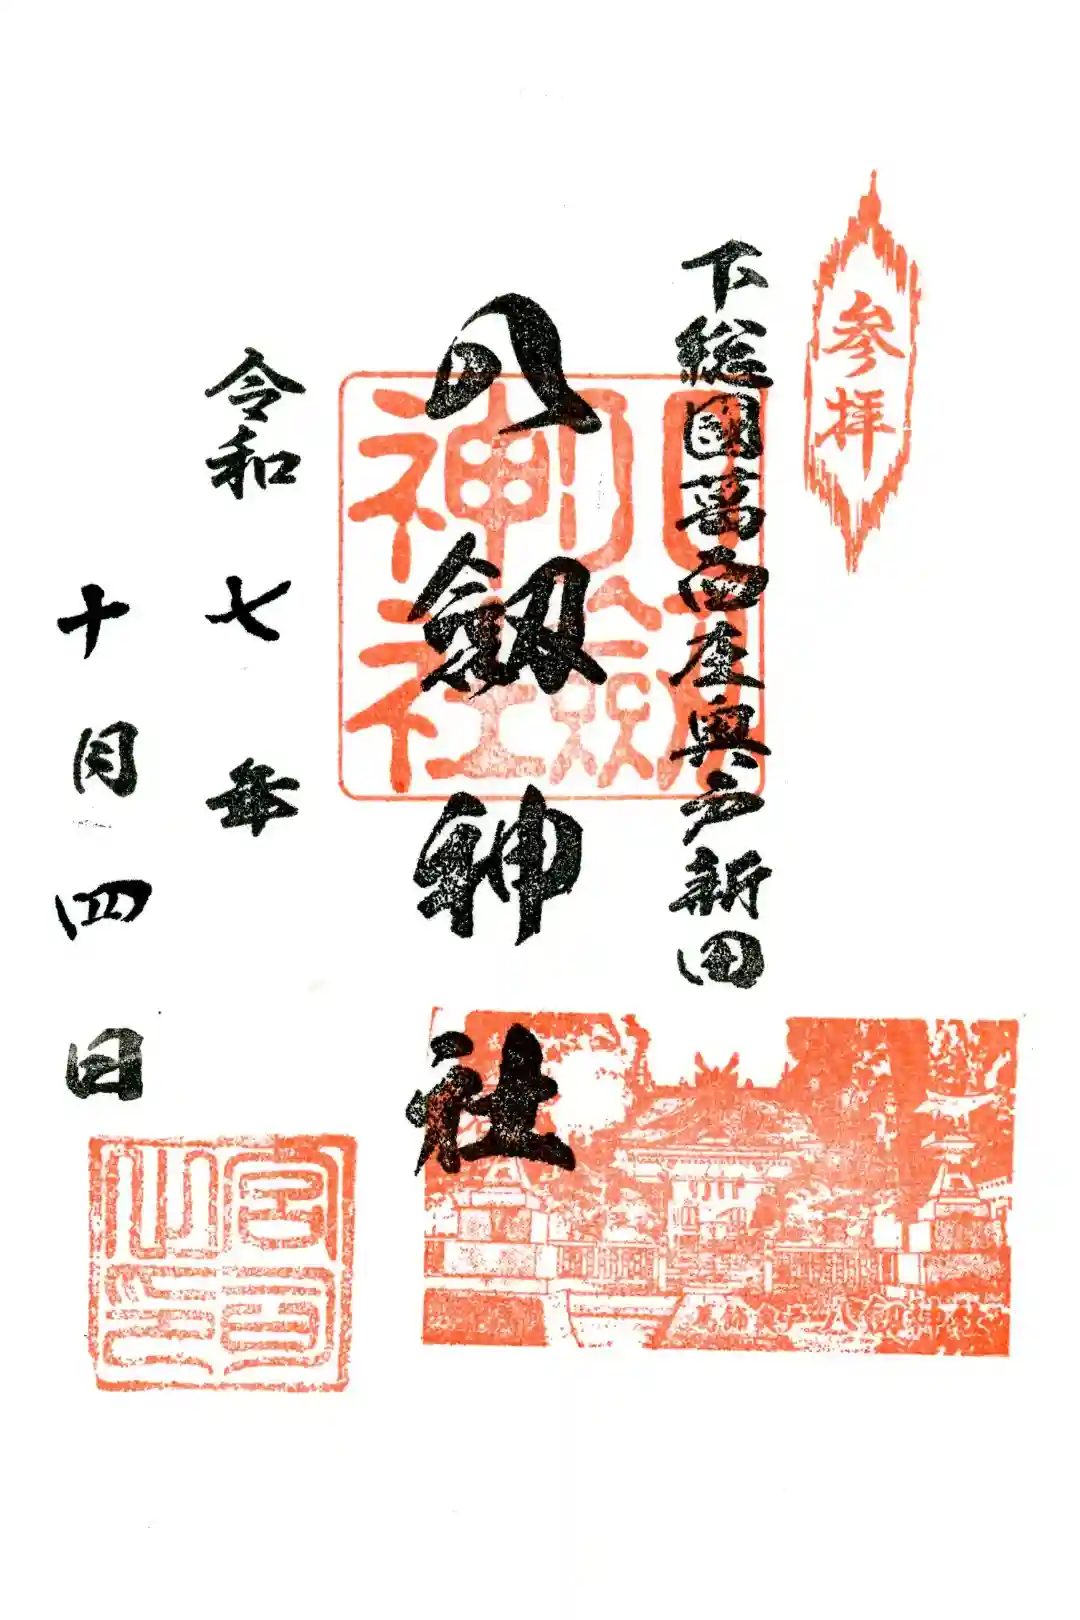 参拝
下総國葛西庄奥戸新田
八劔神社
八劔神社
令和七年
十月四日
宮司之印
葛飾奥戸八劔神社